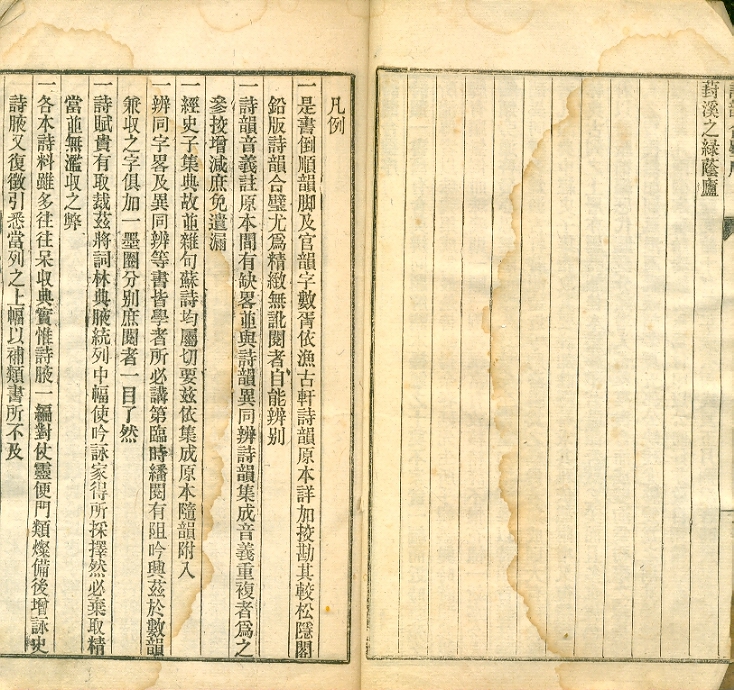 葑溪之緑蔭廬
凡例
一是書倒順韻脚及官韻字數胥依漁古軒詩韻原本詳加挍勘其較松隱閣
鉛版詩韻合璧尤爲精緻無訛閱者自能辨别
一詩韻音義註原本間有缺畧並與詩韻異同辨詩韻集成音義重複者爲之
參挍增減庶免遺漏
一經史子集典故並雜句蘇詩均屬切要兹依集成原本隨韻附入
一辨同字畧及異同辨等書皆學者所必講第臨時繙閱有阻吟興茲於數韻
兼収之字俱加一墨圈分别庶閱者一目了然
一詩賦貴有取裁茲將詞林典腋統列中幅使吟詠家得所採擇然必棄取精
當並無濫収之弊
一各本詩料雖多往往呆収典實惟詩腋一編對仗靈便門類燦備後增詠史
詩腋又復徵引悉當列之上幅以補類書所不及